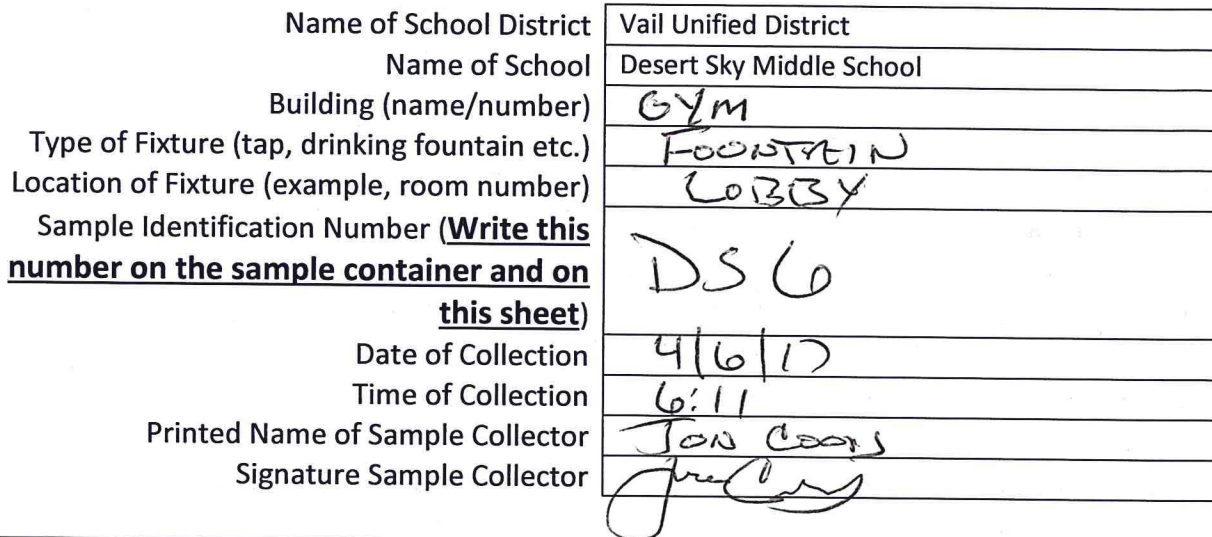 Name of School District Vail Unified District
Name of School Desert Sky Middle School
Building (name/number) GYM
Type of Fixture (tap, drinking fountain etc.) FOONTAIN
Location of Fixture (example, room number) LOBBY
Sample Identification Number (Write this
number on the sample container and on DS6
this sheet)
Date of Collection 4/6/17
Time of Collection 6:11
Printed Name of Sample Collector JON
Signature Sample Collector